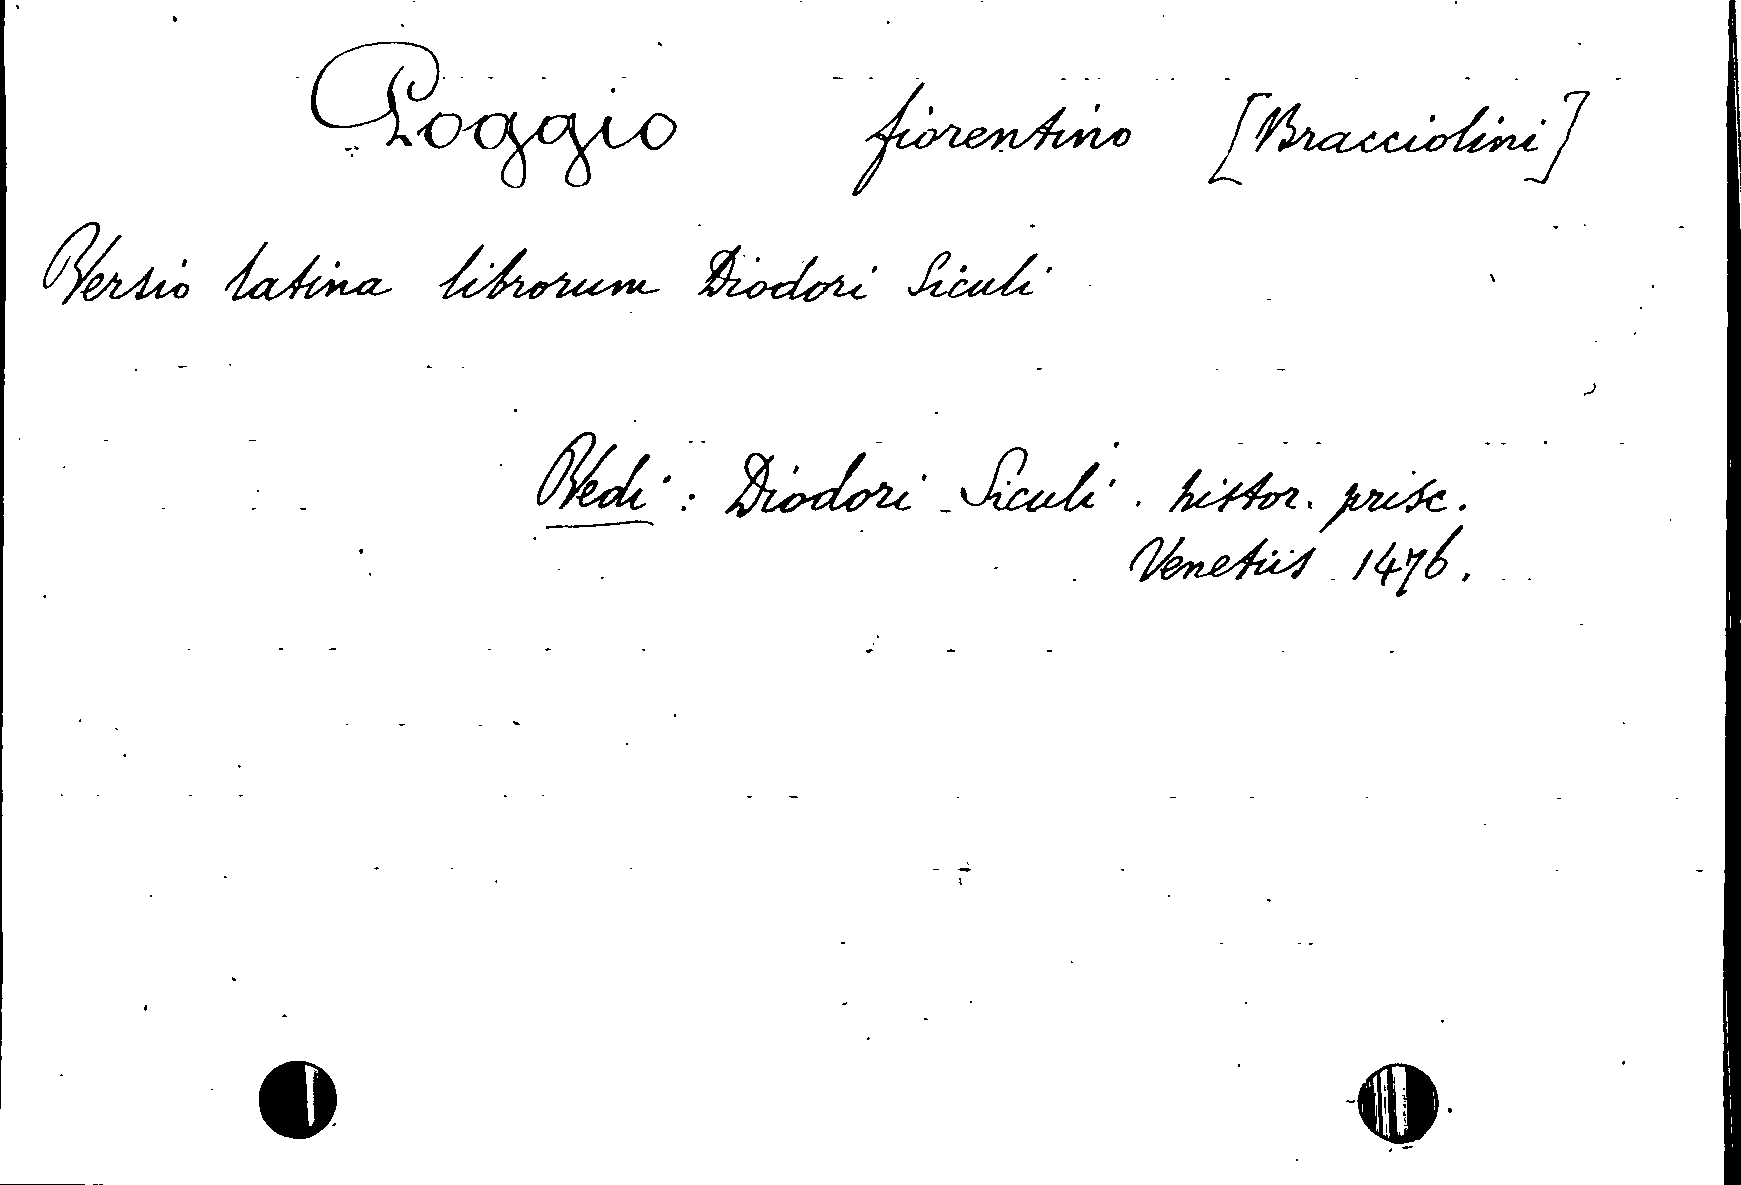 Poggio fiorentino [Bracciolini]
Versio latina librorum Diodori Siculi
Vedi: Diodori Siculi. histor. prisc.
Venetiis 1476.